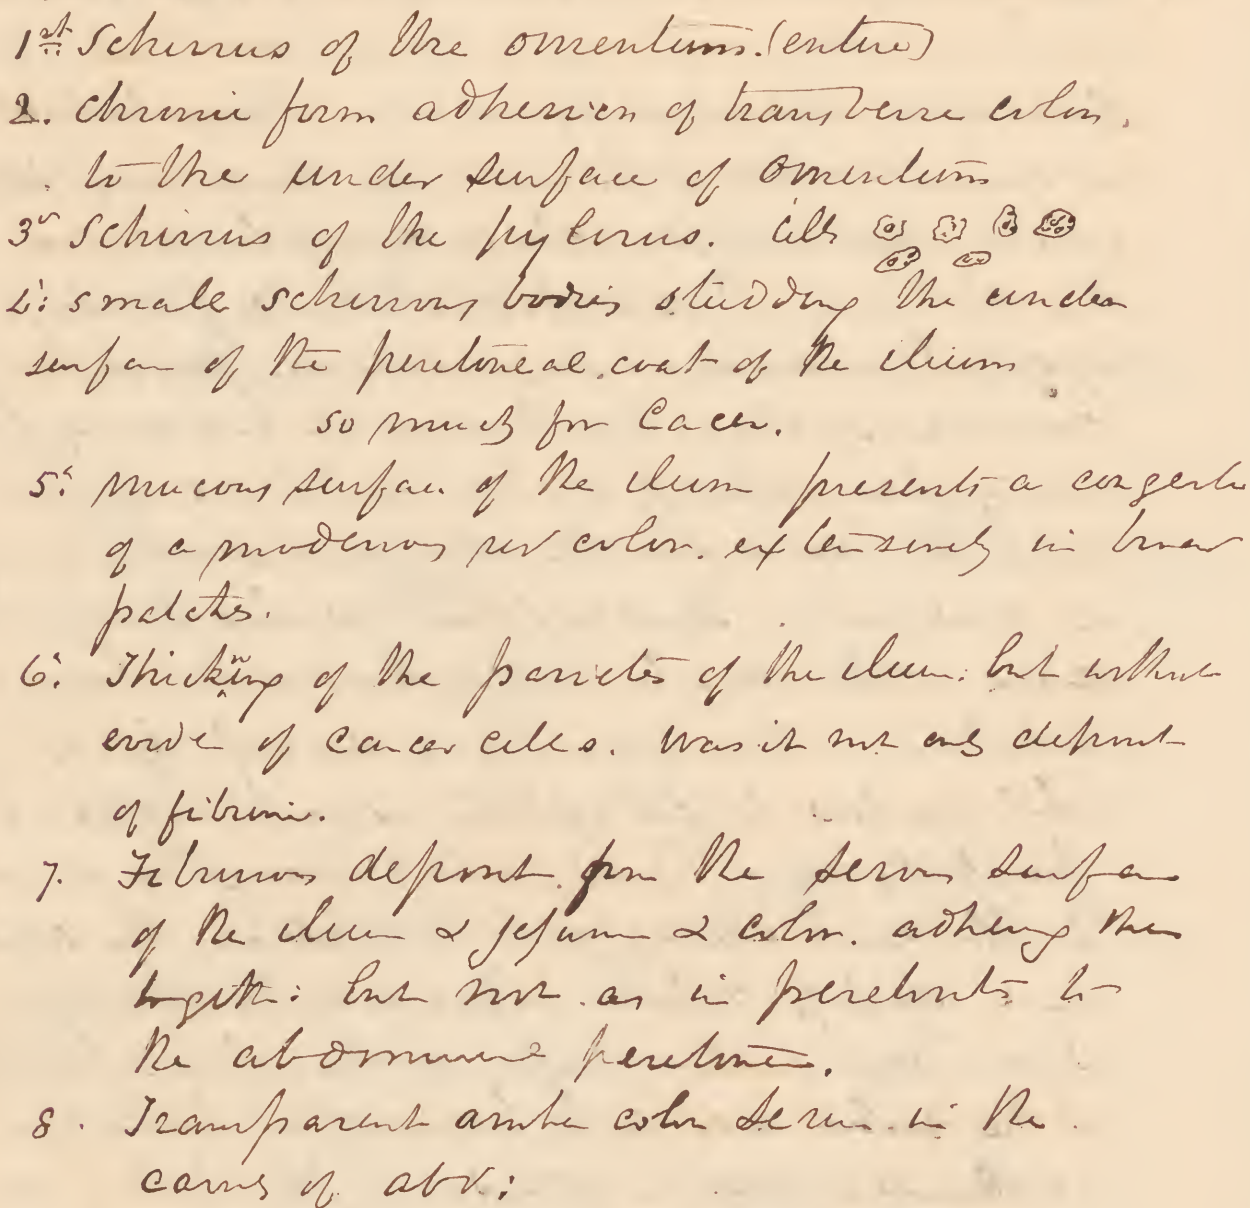 1st Schirrus of the omentum. (entire)
2. chronic form adhesion of transverse colon.
to the under surface of omentum
3d Schirrus of the pylorus. cells
4: small schirrous bodies studding the under
surface of the peretoneal coat of the ilium
so much for Cacer.
5: mucous surface of the ilium presents a congestn
of a moderous red color. extensively in broad
patches.
6: Thickning of the parietes of the ilium: but without
evide of cancer cells. Was it not only deposit
of fibrine.
7. Fibrinous deposit from the serous surface
of the ileum & jejunum & colon. adhering them
together: but not as in peretonitis to
the abdominal peretoneum.
8. Transparent amber color serum in the
cavity of abd: